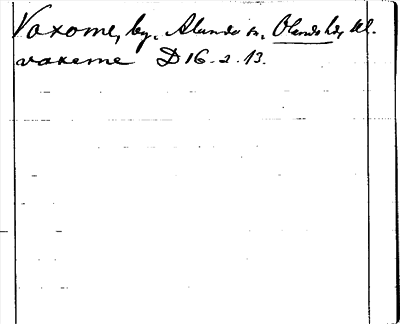 Vaxome, by. Alunda sn, Olands hd, Ul.
vaxeme D 16-2.13.